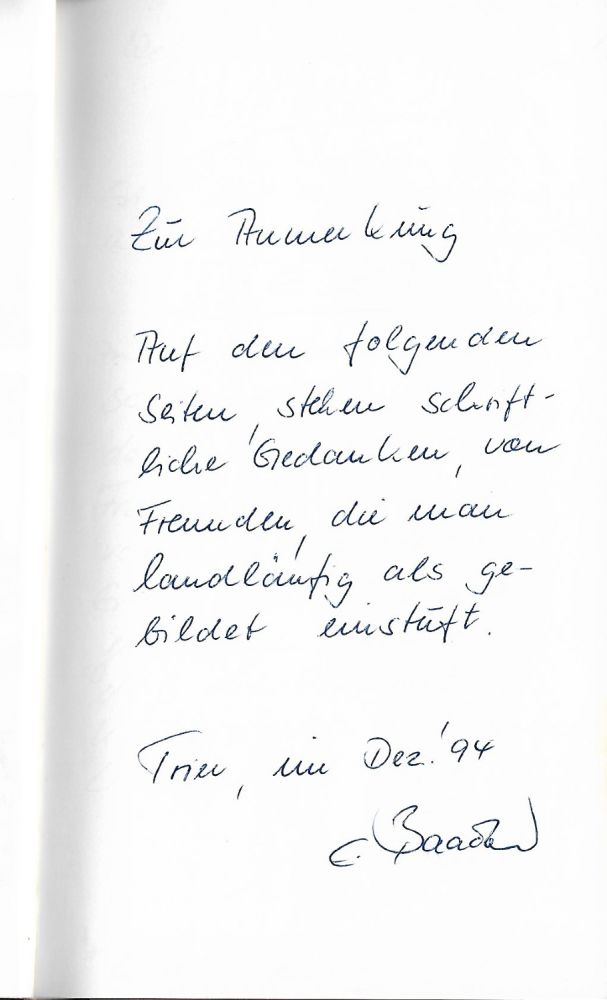 Zur Anmerkung
Auf den folgenden
Seiten, stehen schrift-
liche Gedanken, von
Freunden, die man
landläufig als ge-
bildet einstuft.
Trier, im Dez.'94
E.